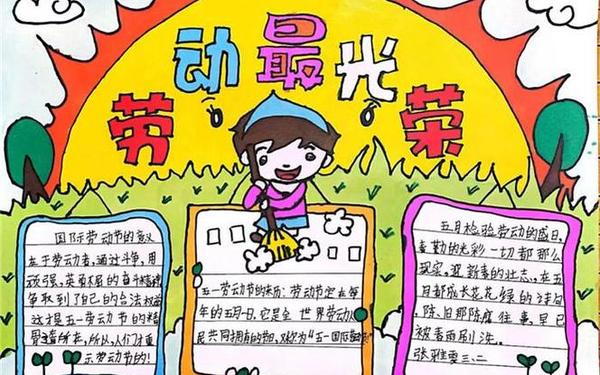 劳动最光荣
国际劳动节的意义
在于劳动者,通过斗争,用
顽强、英勇不屈的奋斗精神
争取到了自己的合法权益
这才是五一劳动节的精
所在,所以,人们才
示劳动节的!
五一劳动节的来历:劳动节定在每
年的五月一日,它是全世界劳动人
民共同拥有的节日,又称为"五一国际
五月检验劳动的盛日,
勤的光彩一切都那么
现实,
五
月都成长花花绿的
陈旧那陈腐往事,早已
被春雨刷洗。
张雅雯三、二